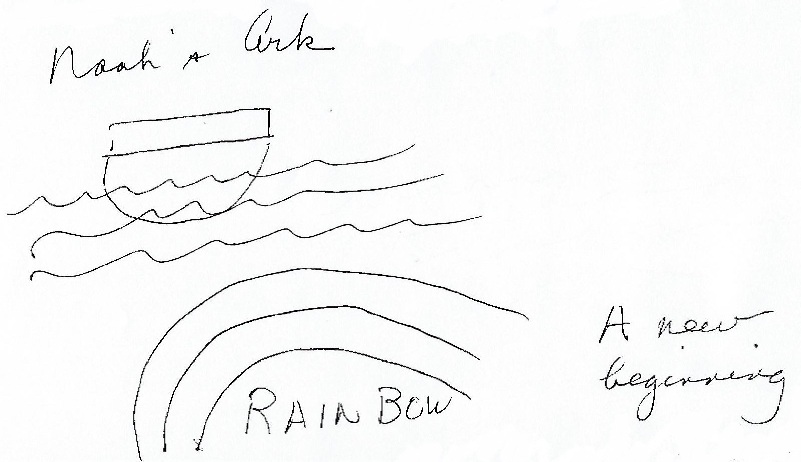 Noah's Ark
RAINBOW
A new
beginning